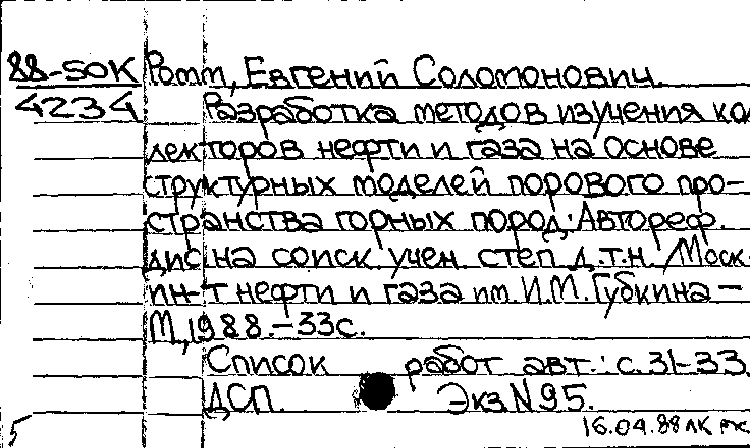 88-50К Ромм, Евгений Соломонович.
4234 Разработка методов изучения кол
лекторов нефти и газа на основе
структурных моделей порового про-
странства горных пород: Автореф.
дис на соиск. учен. степ д.т.н. /Моск.
ин-т нефти и газа им. И.М. Губкина –
М., 1988. – 33с.
Список работ авт.: с. 31-33.
ДСП. Экз N 95.
5 16.04.88 ЛК